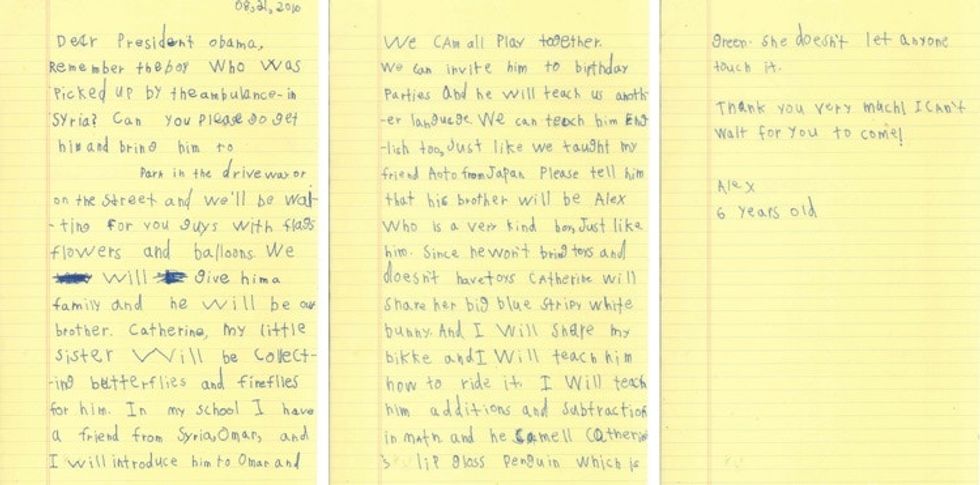 08,21,
Dear President obama,
Remember the boy who was
Picked up by the ambulance-in
Syria? Can you please go get
him and bring him to
Park in the driveway or
on the street and we'll be wai-
-ting for you guys with flags
flowers and balloons. We
will give him a
family and he will be our
brother. Catherine, my little
sister will be collect-
-ing butterflies and fireflies
for him. In my school I have
a friend from Syria, Omar, and
I will introduce him to Omar and
We can all play together.
We can invite him to birthday
parties and he will teach us anoth-
-er language. We can teach him Eng
-lish too, Just like we taught my
friend Aoto from Japan Please tell him
that his brother will be Alex
who is a very kind boy, Just like
him. Since he won't bring toys and
doesn't have toys Catherine will
share her big blue stripy white
bunny. And I will share my
bikke and I will teach him
how to ride it. I will teach
him additions and subtraction
in math and he Catherin
lip gloss penguin which is
green. She doesn't let anyone
touch it.
Thank you very much! I can't
wait for you to come!
Alex
6 years old